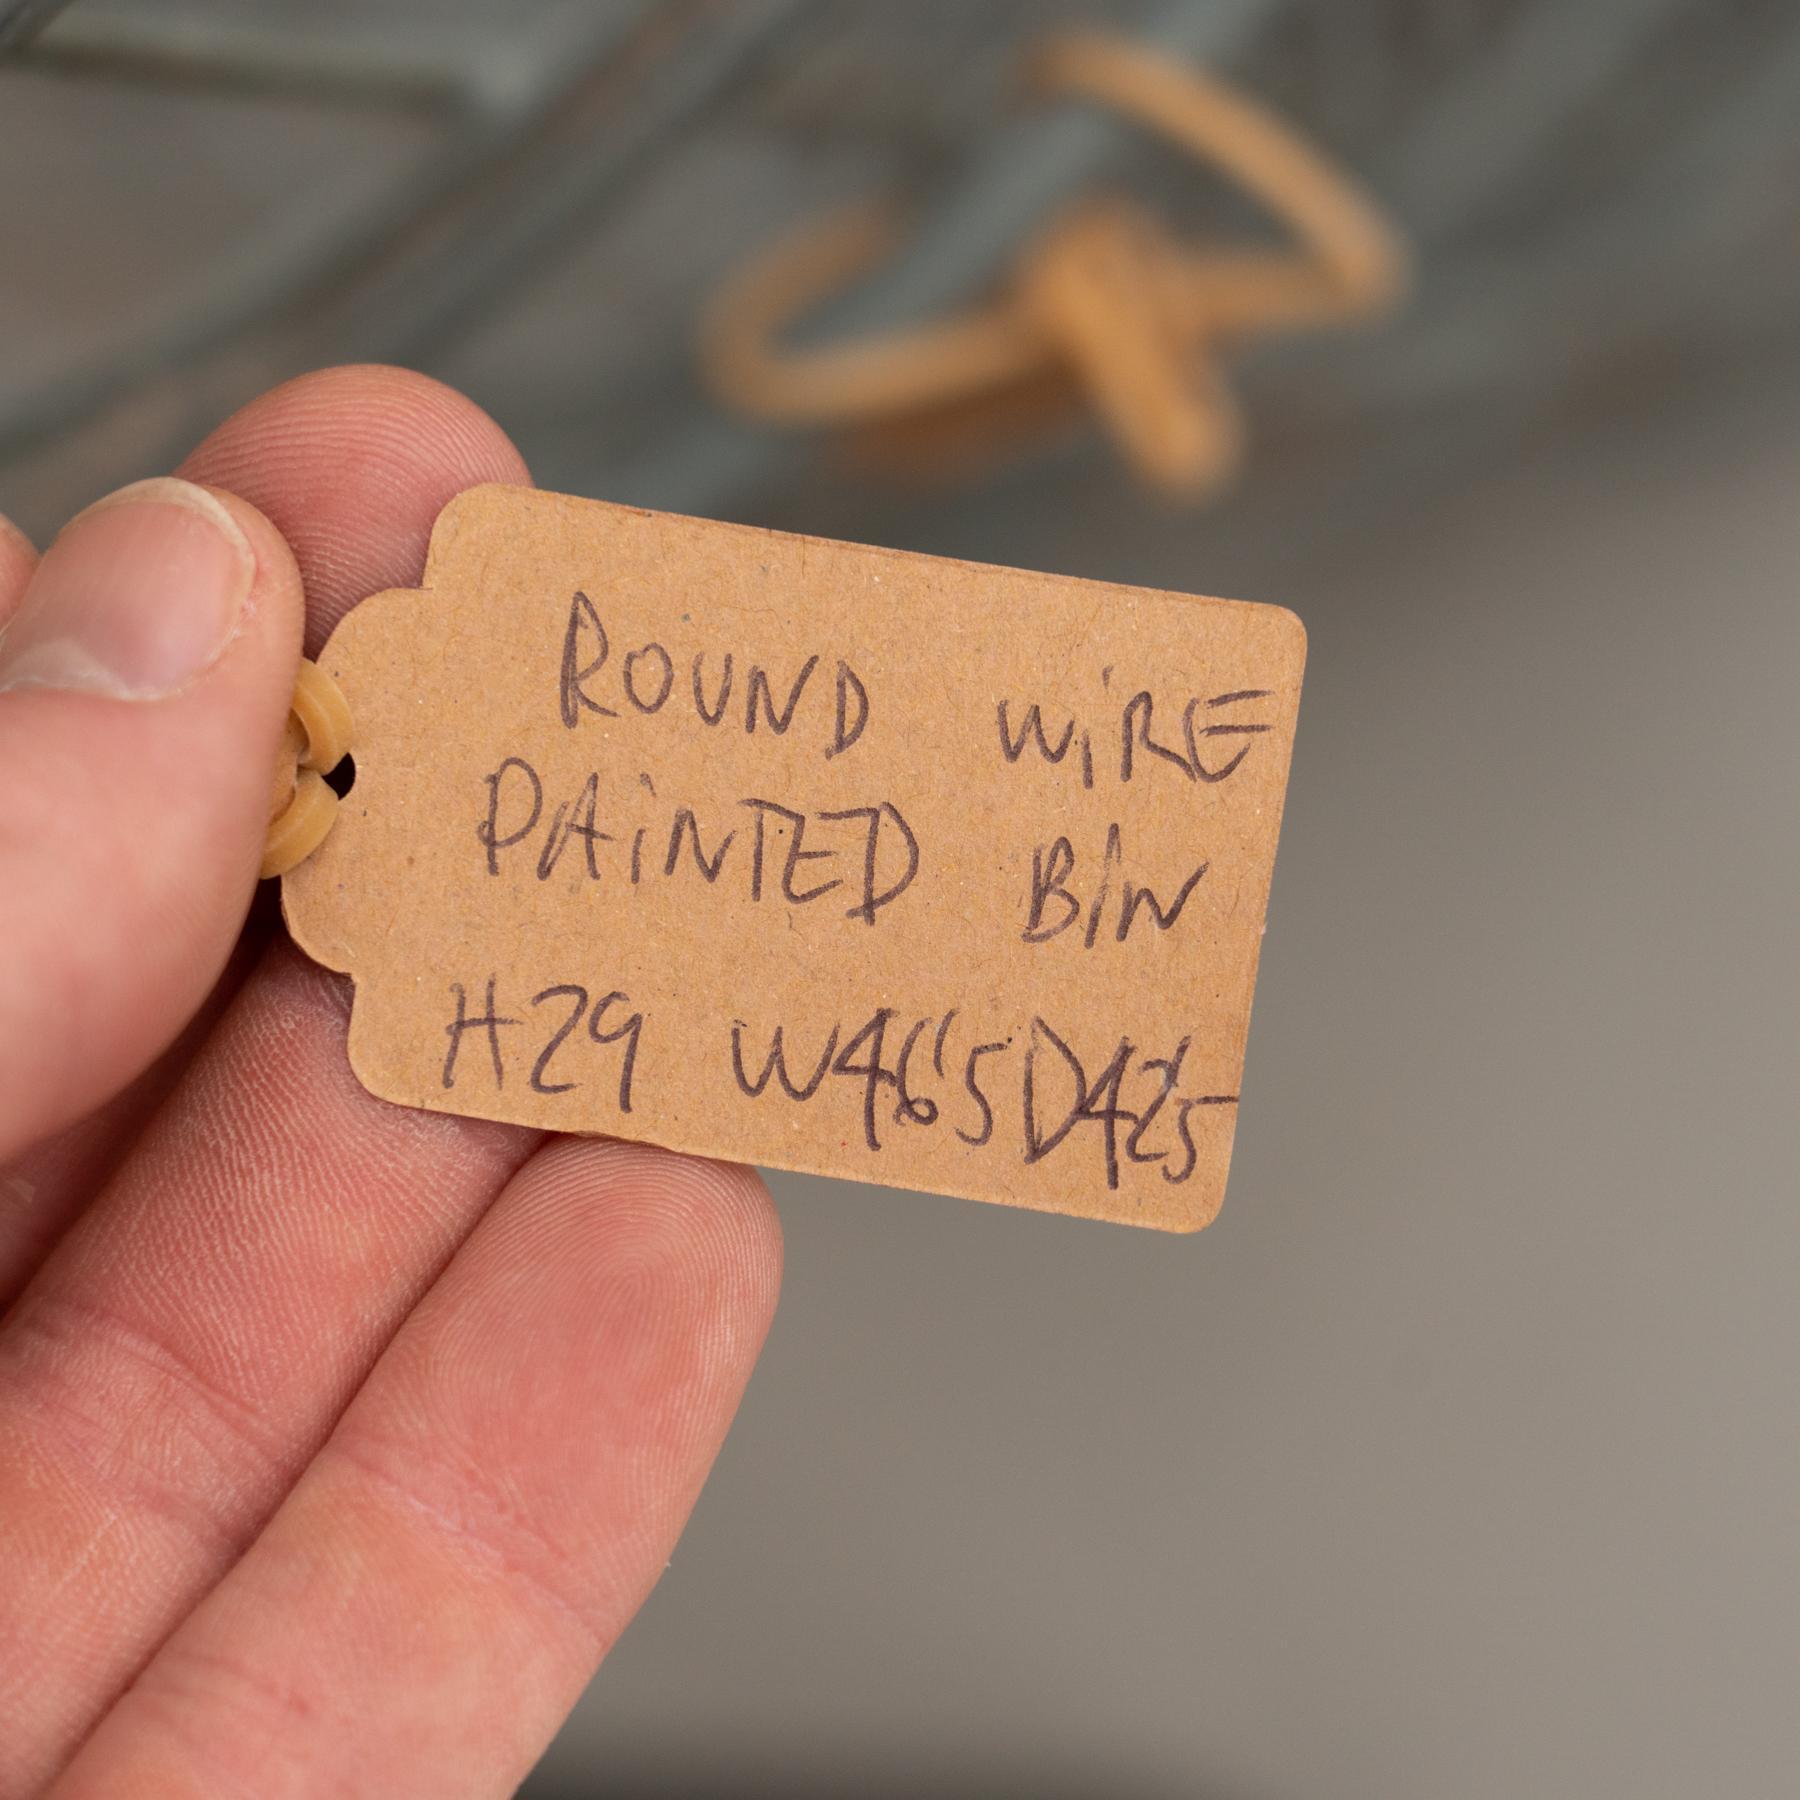 ROUND WiRE
PAiNTED BIN
H29 W46'5 D42'5